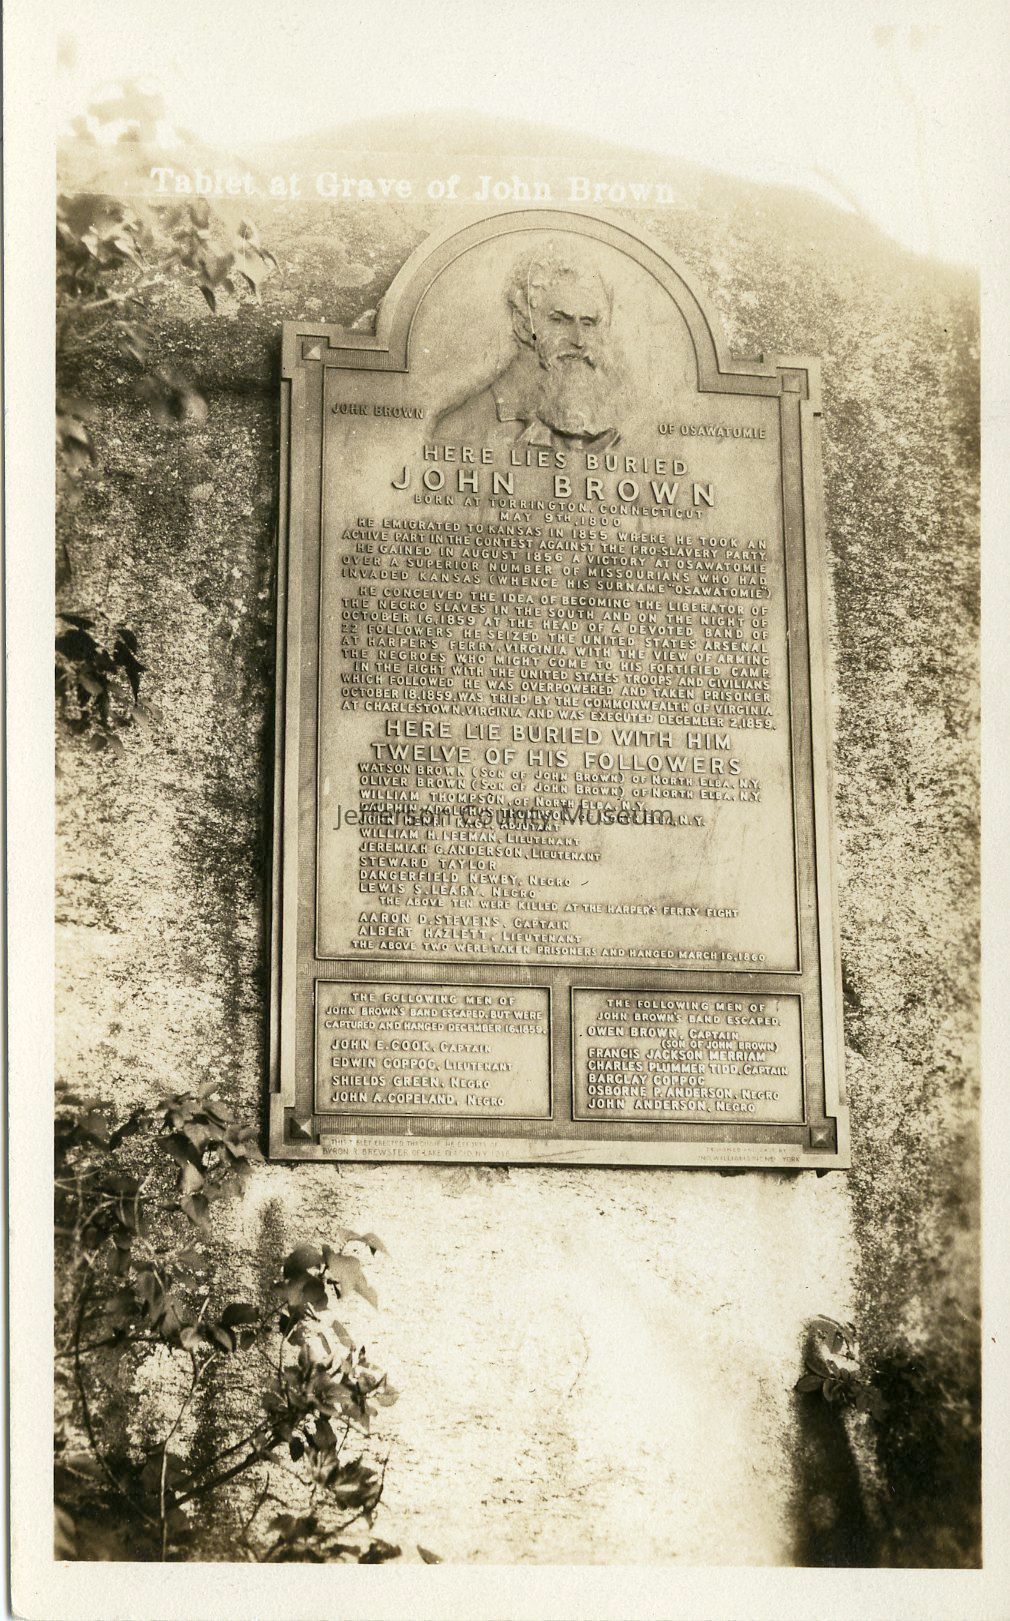 Tablet at Grave of John Brown
JOHN BROWN
OF OSAWATOMIE
HERE LIES BURIED
JOHN BROWN
BORN AT TORRINGTON, CONNECTICUT
MAY 9TH, 1800
HE EMIGRATED TO KANSAS IN 1855 WHERE HE TOOK AN
ACTIVE PART IN THE CONTEST AGAINST THE PRO-SLAVERY PARTY
HE GAINED IN AUGUST 1856 A VICTORY AT OSAWATOMIE
OVER A SUPERIOR NUMBER OF MISSOURIANS WHO HAD
INVADED KANSAS (WHENCE HIS SURNAME "OSAWATOMIE")
HE CONCEIVED THE IDEA OF BECOMING THE LIBERATOR OF
THE NEGRO SLAVES IN THE SOUTH AND ON THE NIGHT OF
OCTOBER 16, 1859 AT THE HEAD OF A DEVOTED BAND OF
22 FOLLOWERS HE SEIZED THE UNITED STATES ARSENAL
AT HARPER'S FERRY, VIRGINIA WITH THE VIEW OF ARMING
THE NEGROES WHO MIGHT COME TO HIS FORTIFIED CAMP.
IN THE FIGHT WITH THE UNITED STATES TROOPS AND CIVILIANS
WHICH FOLLOWED HE WAS OVERPOWERED AND TAKEN PRISONER
OCTOBER 18, 1859, WAS TRIED BY THE COMMONWEALTH OF VIRGINIA
AT CHARLESTOWN, VIRGINIA AND WAS EXECUTED DECEMBER 2, 1859.
HERE LIE BURIED WITH HIM
TWELVE OF HIS FOLLOWERS
WATSON BROWN (SON OF JOHN BROWN) OF NORTH ELBA, N.Y.
OLIVER BROWN (SON OF JOHN BROWN) OF NORTH ELBA, N.Y.
WILLIAM THOMPSON, OF NORTH ELBA, N.Y.
DAUPHIN ADOLPHUS THOMPSON, N.Y.
JOHN ADJUTANT
Jefferson County Museum
WILLIAM H. LEEMAN, LIEUTENANT
JEREMIAH G. ANDERSON, LIEUTENANT
STEWARD TAYLOR
DANGERFIELD NEWBY, NEGRO
LEWIS S. LEARY, NEGRO
THE ABOVE TEN WERE KILLED AT THE HARPER'S FERRY FIGHT
AARON D. STEVENS, CAPTAIN
ALBERT HAZLETT, LIEUTENANT
THE ABOVE TWO WERE TAKEN PRISONERS AND HANGED MARCH 16, 1860
THE FOLLOWING MEN OF
JOHN BROWN'S BAND ESCAPED, BUT WERE
CAPTURED AND HANGED DECEMBER 16, 1859.
JOHN E. COOK, CAPTAIN
EDWIN COPPOC, LIEUTENANT
SHIELDS GREEN, NEGRO
JOHN A. COPELAND, NEGRO
THE FOLLOWING MEN OF
JOHN BROWN'S BAND ESCAPED.
OWEN BROWN, CAPTAIN
(SON OF JOHN BROWN)
FRANCIS JACKSON MERRIAM
CHARLES PLUMMER TIDD, CAPTAIN
BARCLAY COPPOC
OSBORNE P. ANDERSON, NEGRO
JOHN ANDERSON, NEGRO
BYRON R. BREWSTER OF LAKE PLACID N.Y.